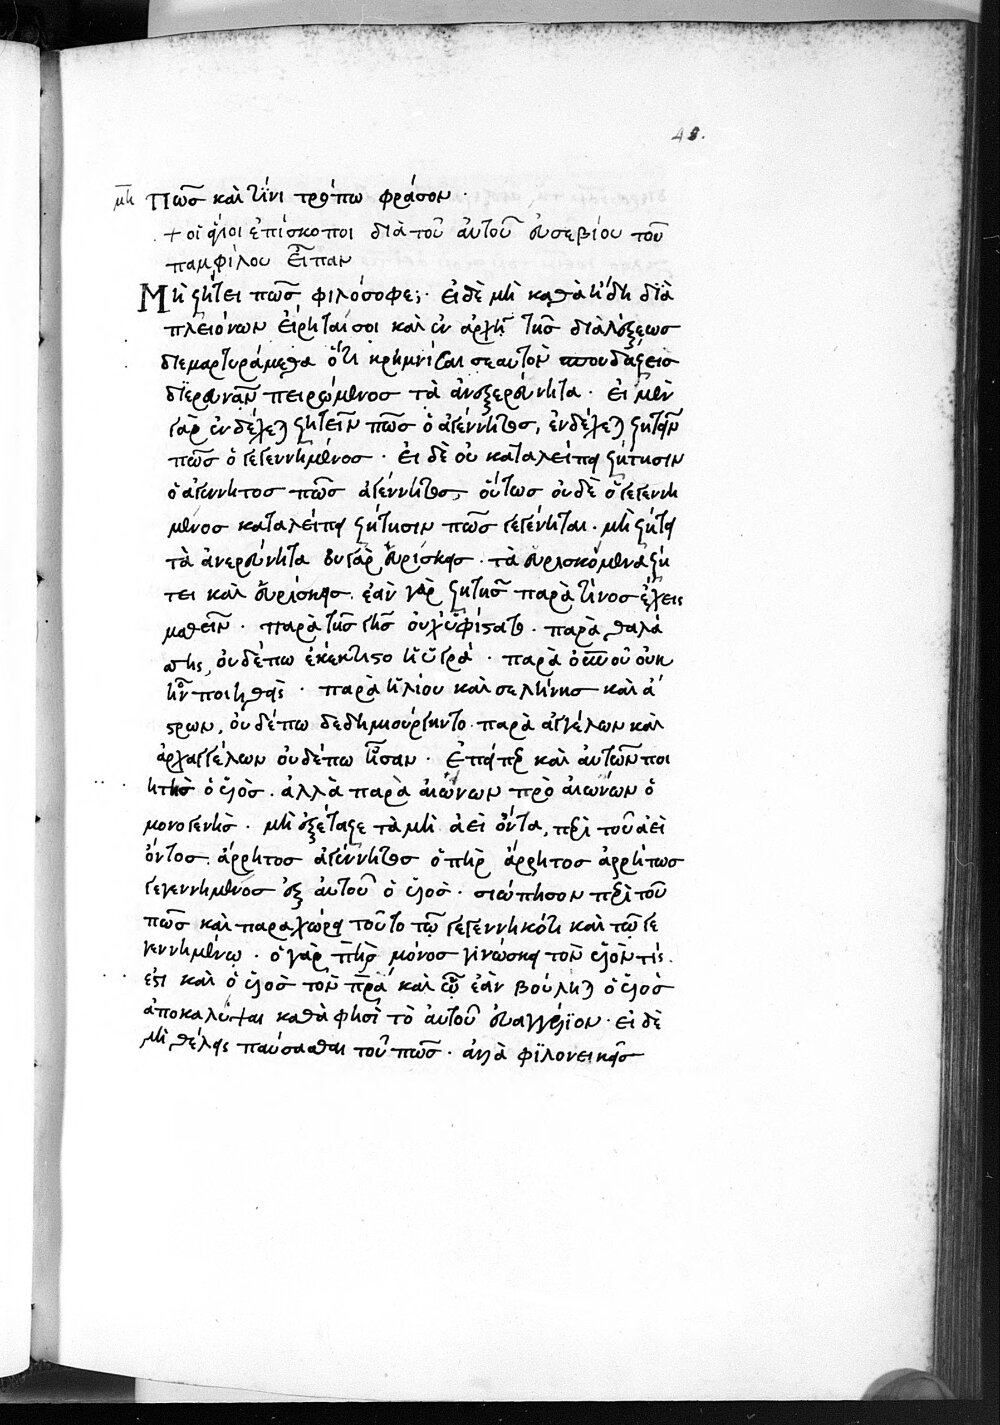 48.
μη Πῶσ καὶ τίνι τρόπω φράσον ·
+ οἱ ἅγιοι ἐπίσκοποι διὰ τοῦ αὐτοῦ εὐσεβίου τοῦ
παμφίλου εἶπαν
Μὴ ζήτει πῶσ φιλόσοφε; · εἰ δὲ μὴ καθὰ ἤδη διὰ
πλειόνων εἴρηταί σοι καὶ ἐν ἀρχῆ τῆσ διαλέξεωσ
διεμαρτυράμεθα ὅτι κρημνίσαι σεαυτὸν σπουδάζεισ
διερευνᾶν πειρώμενοσ τὰ ἀνεξερεύνητα · εἰ μὲν
γὰρ ἐνδέχεται ζητεῖν πῶσ ὁ ἀγέννητοσ, ἐνδέχεται ζητεῖν
πῶσ ὁ γεγεννημένοσ · εἰ δὲ οὐ καταλείπει ζήτησιν
ὁ ἀγέννητοσ πῶσ ἀγέννητοσ, οὕτωσ οὐδὲ ὁ γεγενη
μένοσ καταλείπει ζήτησιν πῶσ γεγένηται · μὴ ζήτει
τὰ ἀνερεύνητα οὐ γὰρ εὑρίσκεισ · τὰ εὑρισκόμενα ζή
τει καὶ εὑρίσκεισ · ἐὰν γὰρ ζητῆσ παρὰ τίνοσ ἔχεις
μαθεῖν · παρὰ τῆσ γῆσ οὐχ ὑφίστατο · παρὰ θαλά
σης, οὐδέπω ἐκέκτιστο ἡ ὑγρά · παρὰ οὐνοῦ οὐκ
ἦν ποιηθεὶς · παρὰ ἡλίου καὶ σελήνησ καὶ ἀ
στρων, οὐδέπω δεδημιούργηντο · παρὰ ἀγγέλων καὶ
ἀρχαγγέλων οὐδέπω ἦσαν · ἐπείπερ καὶ αὐτῶν ποι
ητὴσ ὁ υἱὸσ · ἀλλὰ παρὰ αἰώνων πρὸ αἰώνων ὁ
μονογενὴσ · μὴ ἐξέταζε τὰ μὴ ἀεὶ ὄντα, περὶ τοῦ ἀεὶ
ὄντοσ · ἄρρητοσ ἀγέννητοσ ὁ πηρ ἄρρητοσ ἀρρήτωσ
γεγεννημένοσ ἐξ αὐτοῦ ὁ υἱὸσ · σιώπησον περὶ τοῦ
πῶσ καὶ παραχώρει τοῦτο τῷ γεγεννηκότι καὶ τῷ γε
γεννημένῳ · ὁ γὰρ πηρ μόνοσ γινώσκει τὸν υἱὸν τίς ·
ἐστι καὶ ὁ υἱὸσ τὸν πρα καὶ ᾧ ἐὰν βούληται ὁ υἱὸσ
ἀποκαλύψαι καθὰ φησὶ τὸ αὐτοῦ εὐαγγέλιον · εἰ δὲ
μὴ θέλεις παύσασθαι τοῦ πῶσ · ἀλλὰ φιλονεικεῖσ